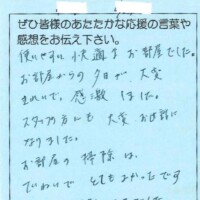 ぜひ皆様のあたたかな応援の言葉や
感想をお伝え下さい。
使いやすい快適なお部屋でした。
お部屋からの夕日が、大変
きれいで、感激しました。
スタッフの方にも大変お世話に
なりました。
お部屋の掃除は、
ていねいでとてもよかったです